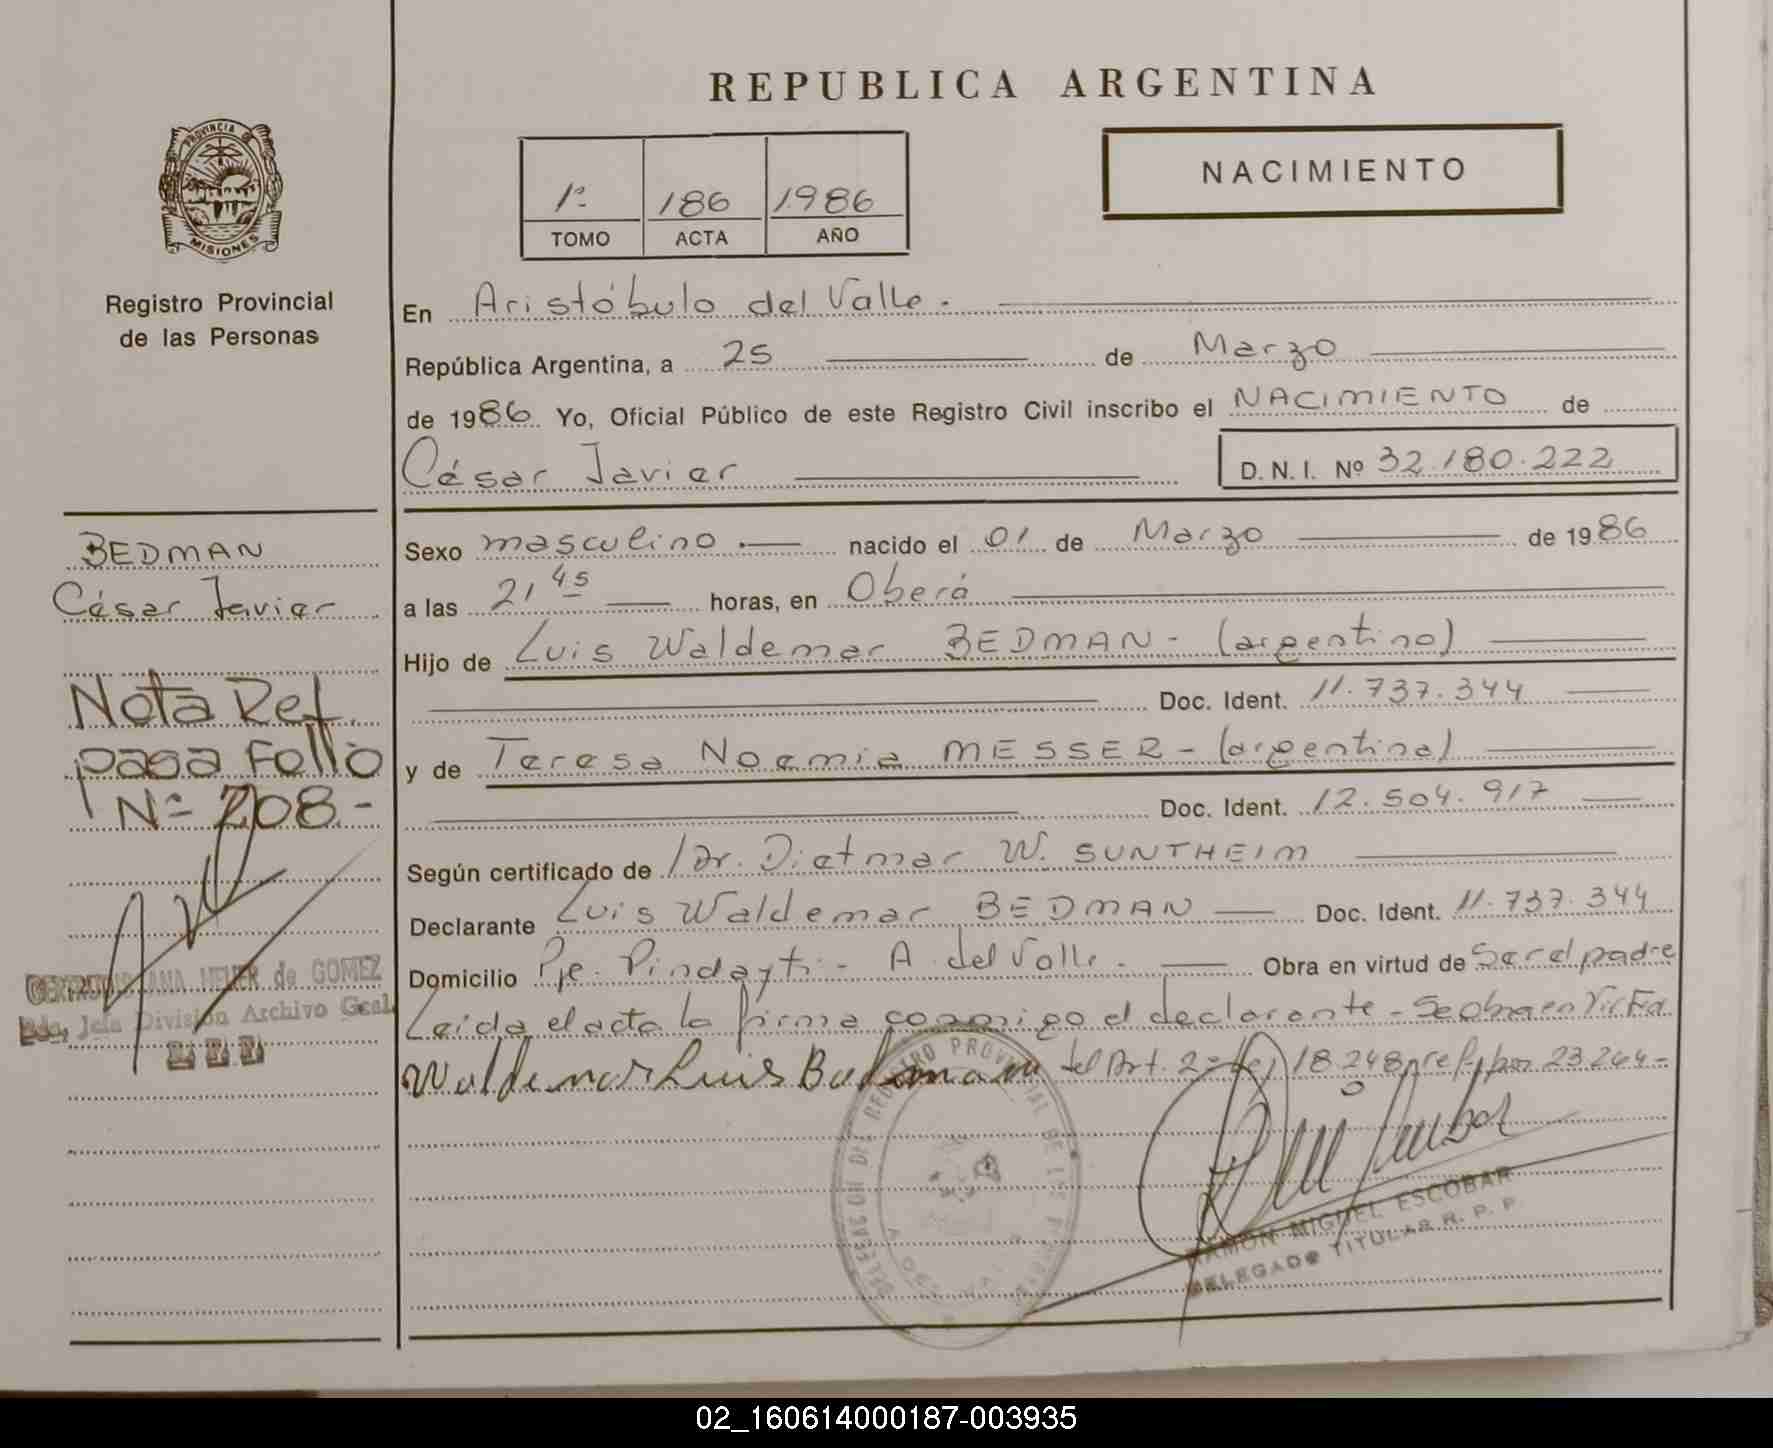 REPUBLICA ARGENTINA
PROVINCIA DE
MISIONES
Registro Provincial
de las Personas
1º 186 1986
TOMO ACTA AÑO
NACIMIENTO
En Aristóbulo del Valle.
República Argentina, a 25 de Marzo
de 1986 Yo, Oficial Público de este Registro Civil inscribo el NACIMIENTO de
César Javier D. N. I. Nº 32.180.222
BEDMAN
César Javier
Nota Ref.
pasa Folio
Nº 208.-
ANA de GOMEZ
Jefa División Archivo Gral.
Sexo masculino.- nacido el 01 de Marzo de 1986
a las 21 45 horas, en Oberá
Hijo de Luis Waldemar BEDMAN - (argentino)
Doc. Ident. 11.737.344
y de Teresa Noemia MESSER - (argentina)
Doc. Ident. 12.504.917
Según certificado de Dr. Dietmar W. SUNTHEIM
Declarante Luis Waldemar BEDMAN Doc. Ident. 11.737.344
Domicilio Pje. Pindayti - A. del Valle. Obra en virtud de Ser el padre
Leída el acta la firma conmigo el declarante - Se obra en
Waldemar Luis Bedman del Art. 2º Ley 18.248 23.264=
DELEGACION DEL REGISTRO PROVINCIAL DE LAS PERSONAS
RAMON MIGUEL ESCOBAR
DELEGADO TITULAR R. P. P.
02_160614000187-003935